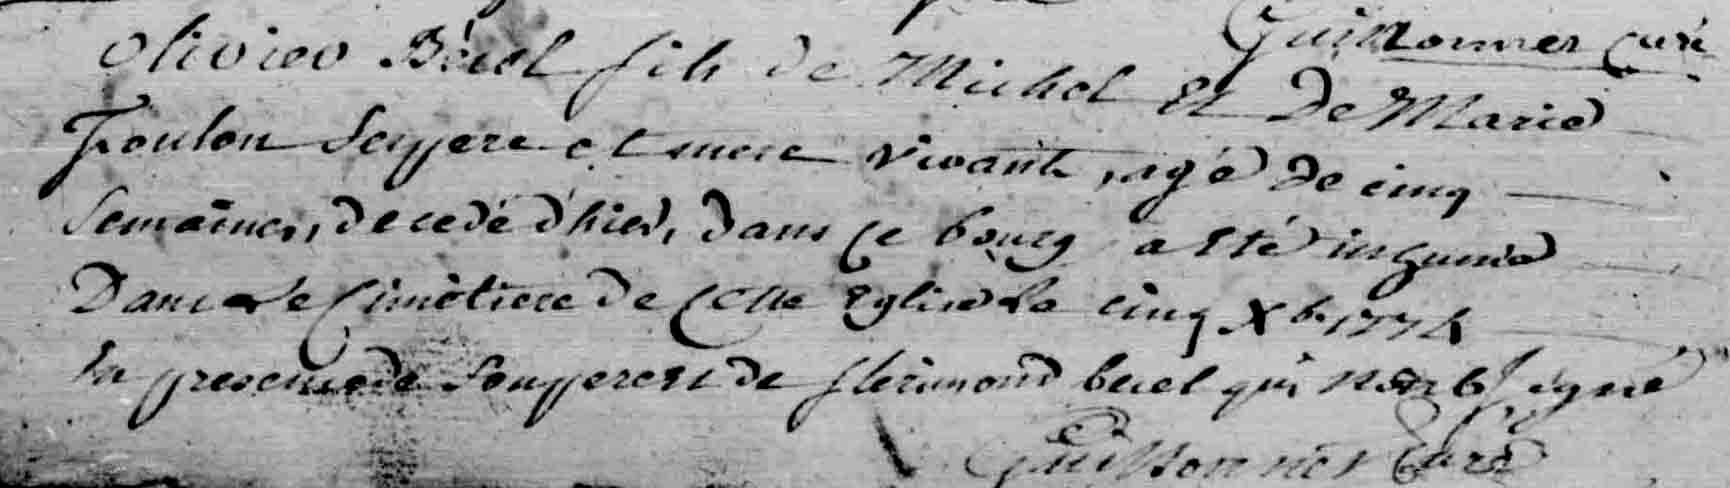 Guillonner curé
olivier Béuel fils de Michel et De Marie
Foulon Ses pere et mere vivants, agé de cinq
Semaines, decedé d'hier, dans ce bourg a eté inhumé
Dans le Cimetiere de Cette Eglise le cinq Xbre 1774
En presence de Son pere et de flerimond beuel qui n'ont Signé
Guillonner Curé